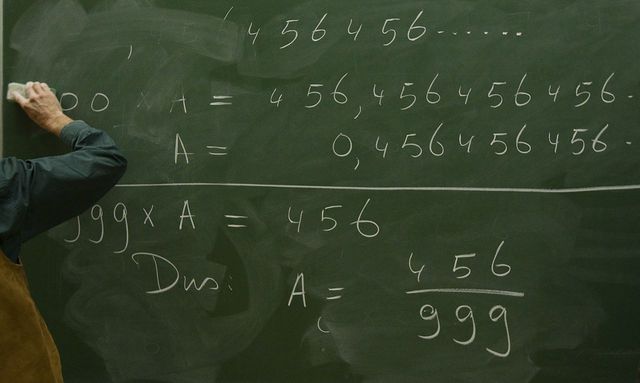 456456......
00 × A = 456,456456456.
A = 0,456456456.
999 × A = 456
Dus: A = 456/999